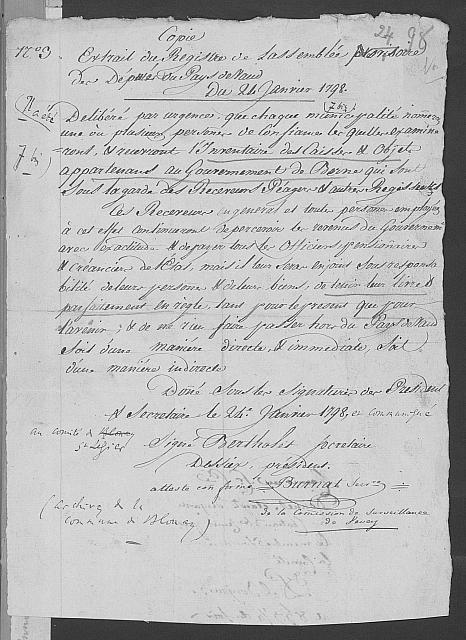 Copie
24 96
N° 3. Extrait du Registre de l'assemblée provisoire
des Deputés du Pays de Vaud
Du 24 Janvier 1798.
(7 bis)
Il a été Délibéré par urgence, que chaque municipalité nomera
7 bis) une ou plusieurs personnes de confiance lesquelles examine-
=ront, & recevront l'Inventaire des Caisses & Objets
appartenans au Gouvernement de Berne qui sont
sous la garde des Receveurs Péagers & autres Regisseurs
Les Receveurs en general et toute personne employée
à cet effet continueront de percevoir les revenus du Gouvernement
avec exactitude & de payer tous les Officiers pensionnaires
& créanciers de l'Etat, mais il leur sera enjoint sous responsa
bilité de leurs personnes & de leurs biens, de tenir leur livres
parfaitement en regle, tans pour le present que pour
l'avenir; & de ne rien faire passer hors du Pays de Vaud
soit d'une manière directe, & immediate, soit
d'une manière indirecte
Doné Sous les Signatures des President
& Secretaire le 24e Janvier 1798, et communiqué
au comité de Blonay
St Légier
Signé Berthalet secretaire
Dessaix, president.
atteste conforme Burnat Secre
(archives de la
commune de Blonay)
de la Comission de Surveillance
de Vevey